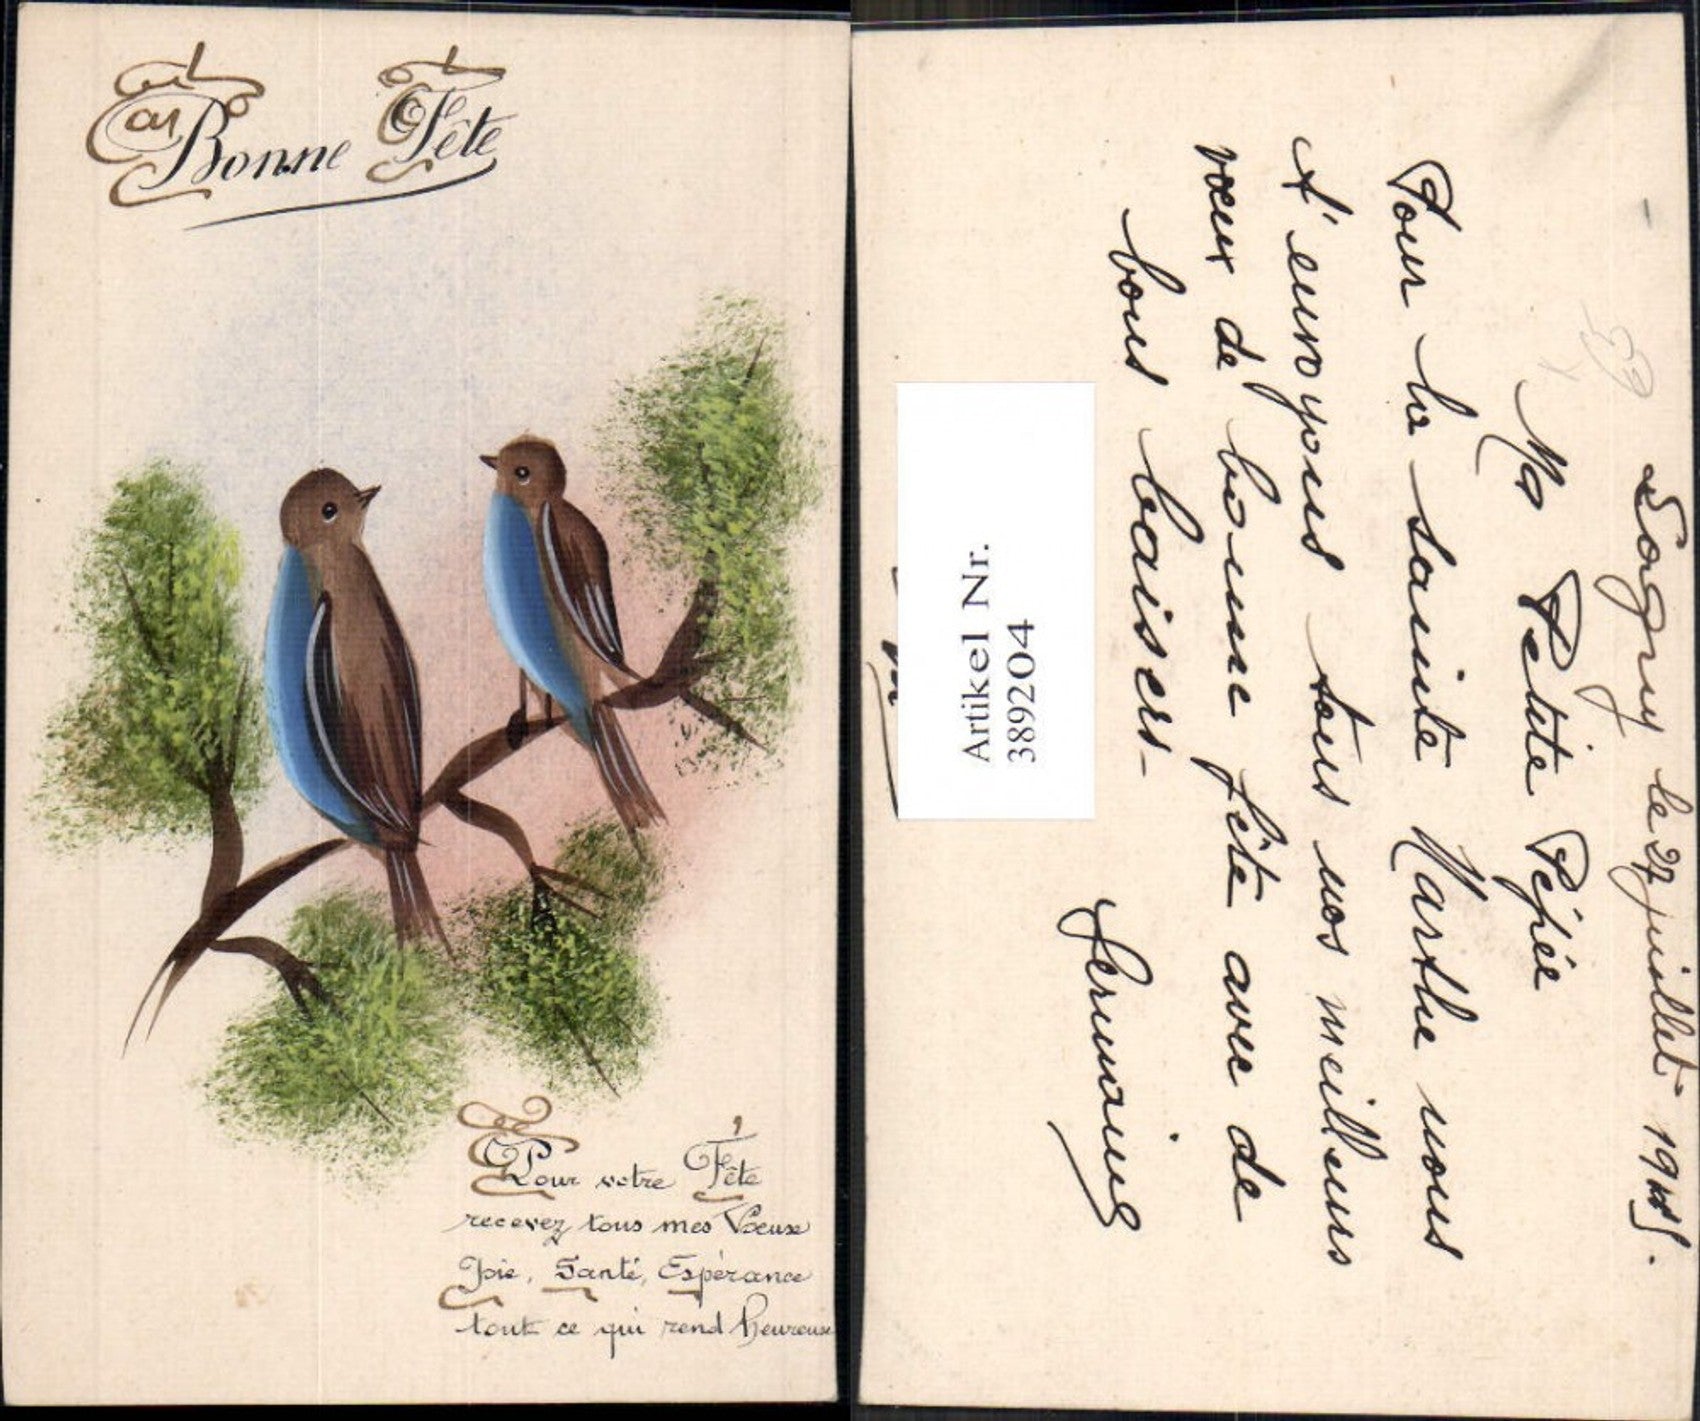 Bonne Fête
Pour votre Fête
recevez tous mes Vœux
Joie, Santé, Espérance
tout ce qui rend heureuse
Lagny le 27 juillet 19
Ma Petite Pépée
Pour la sainte Marthe nous
t'envoyons tous nos meilleurs
vœux de bonne fête avec de
bons baisers-
Germaine
Artikel Nr.
389204